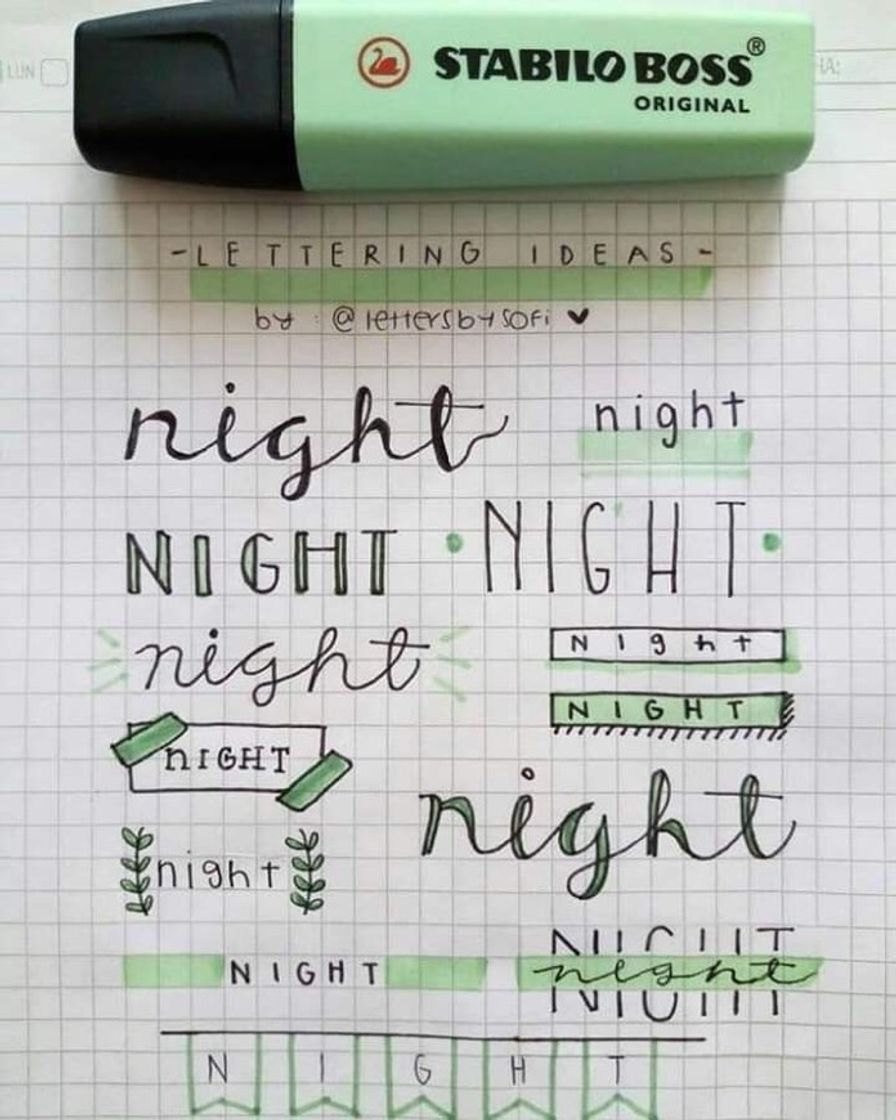 STABILO BOSS®
ORIGINAL
LUN
- LETTERING IDEAS -
by : @lettersbysofi ♥
night
night
NIGHT
NIGHT
night
Night
NIGHT
nIGHT
night
night
NIGHT
NIGHT
night
NIGHT